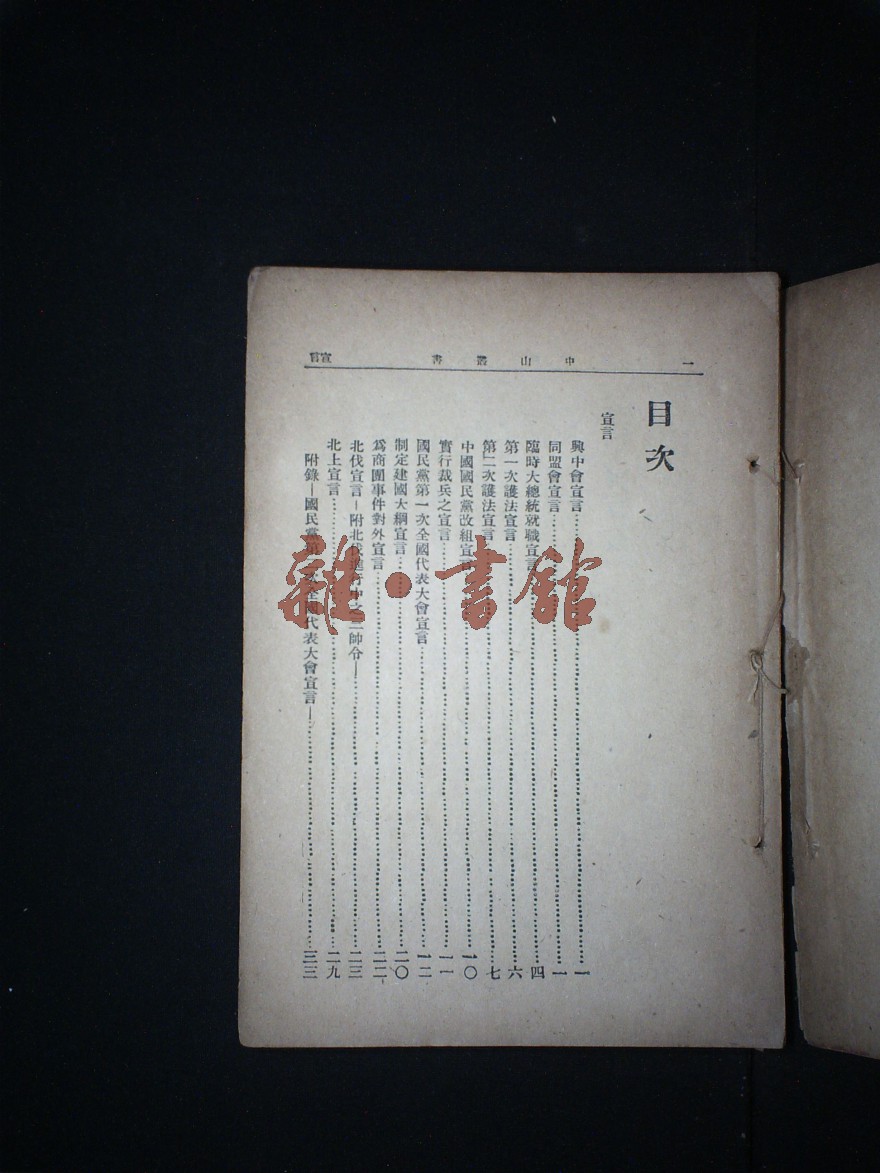 一 中山叢書 宣言
目次
宣言
興中會宣言……一
同盟會宣言……一
臨時大總統就職宣言……四
第一次護法宣言……六
第二次護法宣言……七
中國國民黨改組宣言……一〇
實行裁兵之宣言……一一
國民黨第一次全國代表大會宣言……一二
制定建國大綱宣言……二〇
爲商團事件對外宣言……二二
北伐宣言—附北伐進行中之帥令—……二三
北上宣言……二九
附錄—國民黨第次全國代表大會宣言—……三三
雜·書館